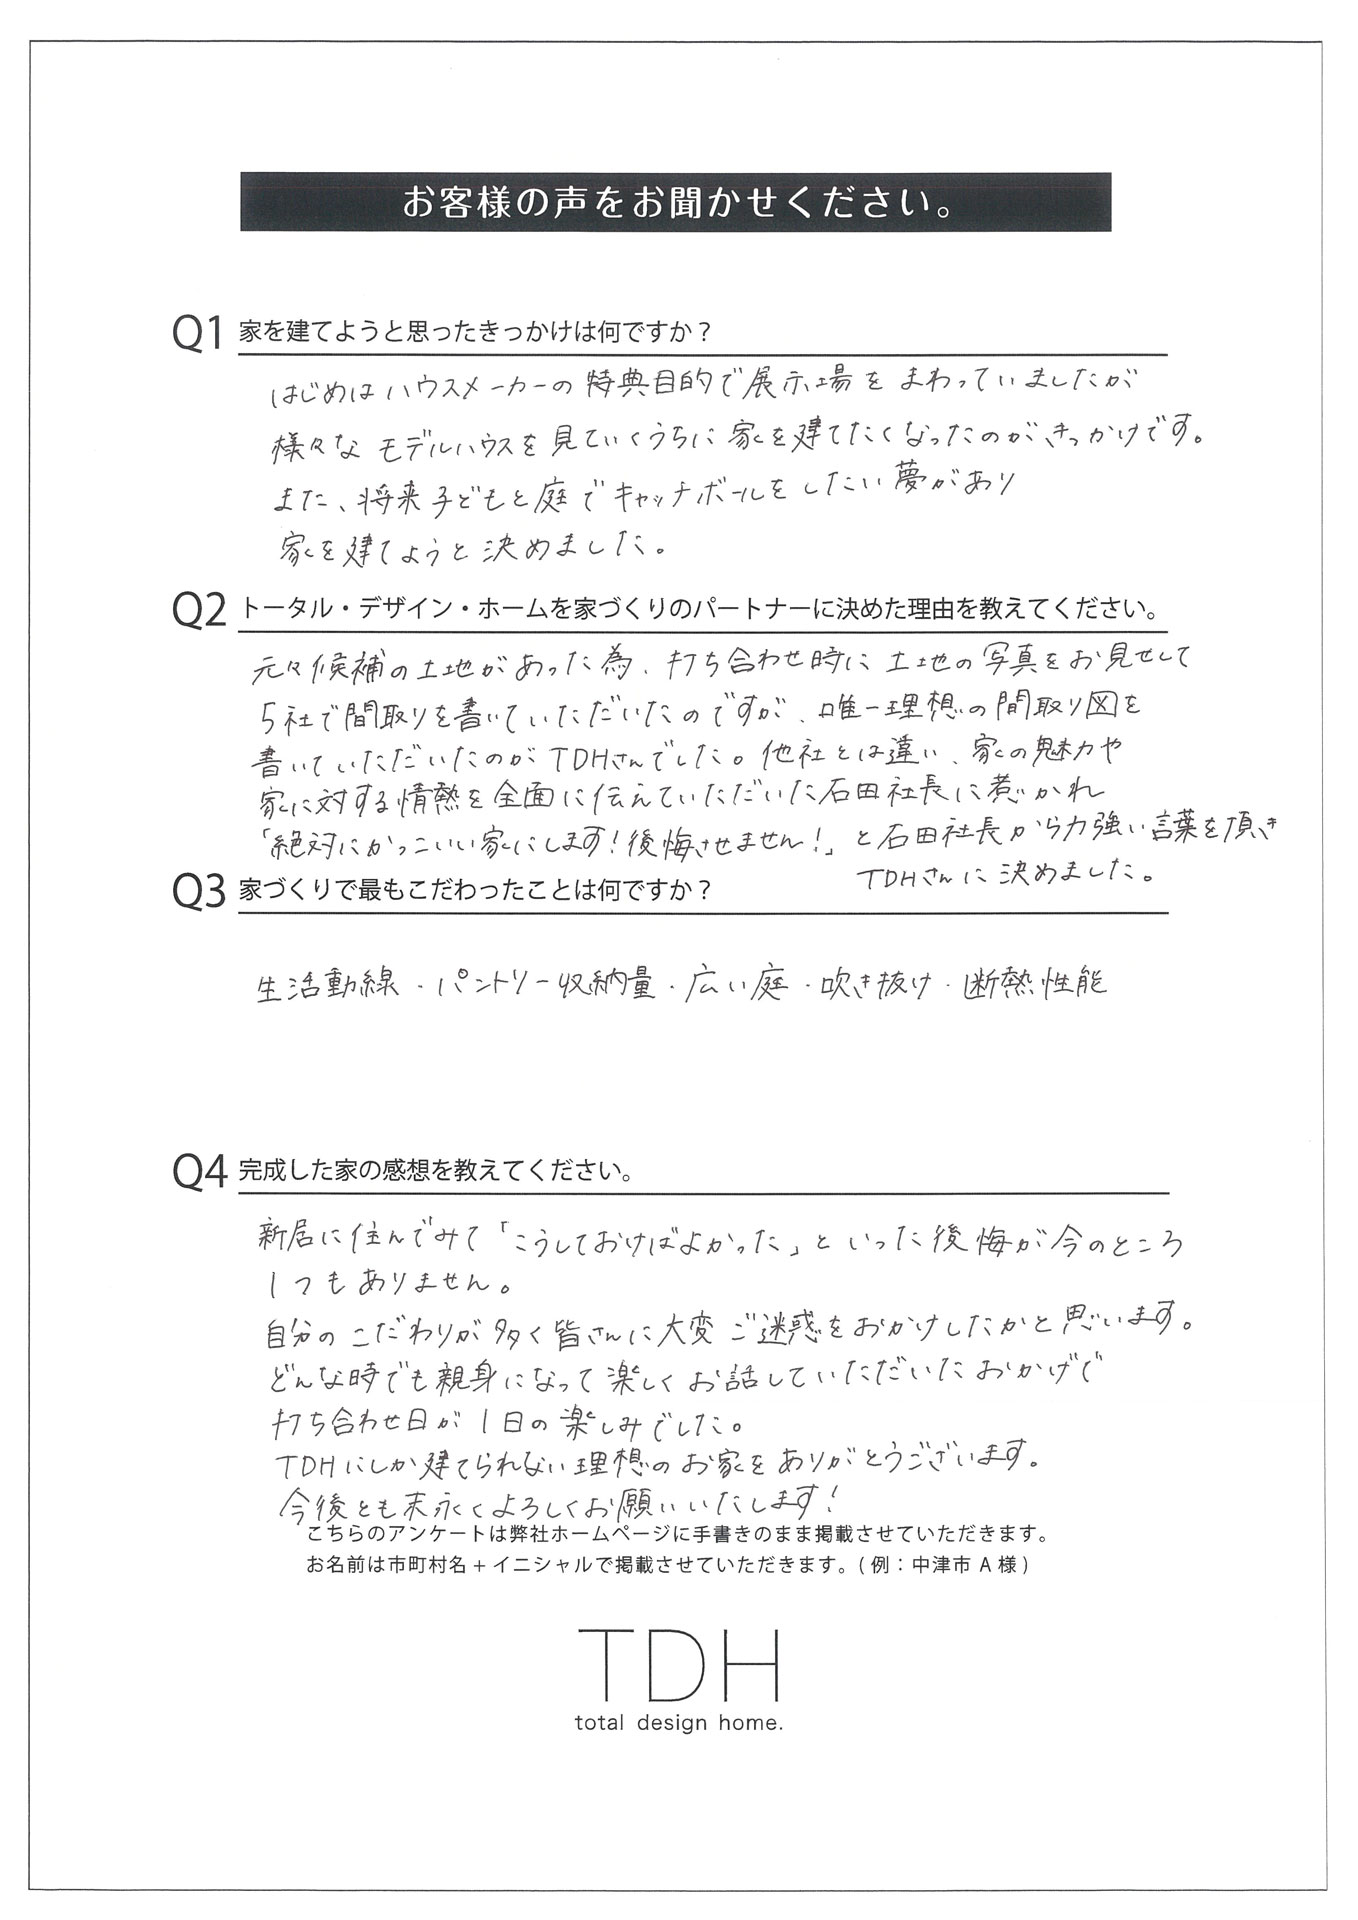 お客様の声をお聞かせください。
Q1 家を建てようと思ったきっかけは何ですか？
はじめはハウスメーカーの特典目的で展示場をまわっていましたが
様々なモデルハウスを見ていくうちに家を建てたくなったのがきっかけです。
また、将来子どもと庭でキャッチボールをしたい夢があり
家を建てようと決めました。
Q2 トータル・デザイン・ホームを家づくりのパートナーに決めた理由を教えてください。
元々候補の土地があった為、打ち合わせ時に土地の写真をお見せして
5社で間取りを書いていただいたのですが、唯一理想の間取り図を
書いていただいたのがTDHさんでした。他社とは違い、家の魅力や
家に対する情熱を全面に伝えていただいた石田社長に惹かれ
「絶対にかっこいい家にします！後悔させません！」と石田社長から力強い言葉を頂き
TDHさんに決めました。
Q3 家づくりで最もこだわったことは何ですか？
生活動線・パントリー収納量・広い庭・吹き抜け・断熱性能
Q4 完成した家の感想を教えてください。
新居に住んでみて「こうしておけばよかった」といった後悔が今のところ
1つもありません。
自分のこだわりが多く皆さんに大変ご迷惑をおかけしたかと思います。
どんな時でも親身になって楽しくお話していただいたおかげで
打ち合わせ日が1日の楽しみでした。
TDHにしか建てられない理想のお家をありがとうございます。
今後とも末永くよろしくお願いいたします！
こちらのアンケートは弊社ホームページに手書きのまま掲載させていただきます。
お名前は市町村名＋イニシャルで掲載させていただきます。(例：中津市 A 様)
TDH
total design home.